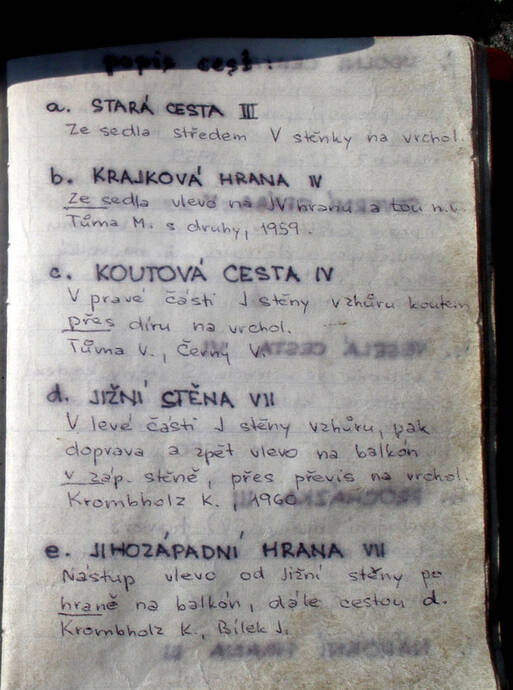 popis cest:
a. STARÁ CESTA III
Ze sedla středem V stěnky na vrchol.
b. KRAJKOVÁ HRANA IV
Ze sedla vlevo na JV hranu a tou n.v.
Tůma M. s druhy, 1959.
c. KOUTOVÁ CESTA IV
V pravé části J stěny vzhůru koutem
přes díru na vrchol.
Tůma V., Černý V.
d. JIŽNÍ STĚNA VII
V levé části J stěny vzhůru, pak
doprava a zpět vlevo na balkón
v záp. stěně, přes převis na vrchol.
Krombholz K., 1960
e. JIHOZÁPADNÍ HRANA VII
Nástup vlevo od Jižní stěny po
hraně na balkón, dále cestou d.
Krombholz K., Bílek J.